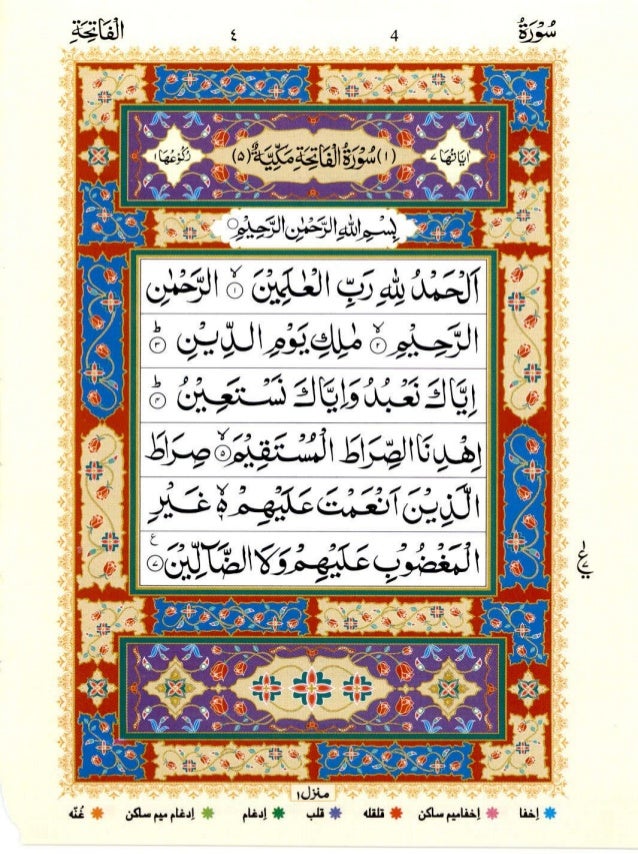 سُوْرَةُ 4 ٤ الْفَاتِحَةِ
اٰيَاتُهَا ٧ (١) سُوْرَةُ الْفَاتِحَةِ مَكِّيَّةٌ (٥) رُكُوْعُهَا ١
بِسْمِ اللّٰهِ الرَّحْمٰنِ الرَّحِيْمِ
اَلْحَمْدُ لِلّٰهِ رَبِّ الْعٰلَمِيْنَ ۙ﴿١﴾ الرَّحْمٰنِ
الرَّحِيْمِ ۙ﴿٢﴾ مٰلِكِ يَوْمِ الدِّيْنِ ؕ﴿٣﴾
اِيَّاكَ نَعْبُدُ وَاِيَّاكَ نَسْتَعِيْنُ ؕ﴿٤﴾
اِهْدِنَا الصِّرَاطَ الْمُسْتَقِيْمَ ۙ﴿٥﴾ صِرَاطَ
الَّذِيْنَ اَنْعَمْتَ عَلَيْهِمْ ۙ۬ غَيْرِ
الْمَغْضُوْبِ عَلَيْهِمْ وَلَا الضَّآلِّيْنَ ﴿٧﴾ ع
منزل ١
اِخفا اِخفامیم ساکن قلقله قلب اِدغام اِدغام میم ساکن غُنّه